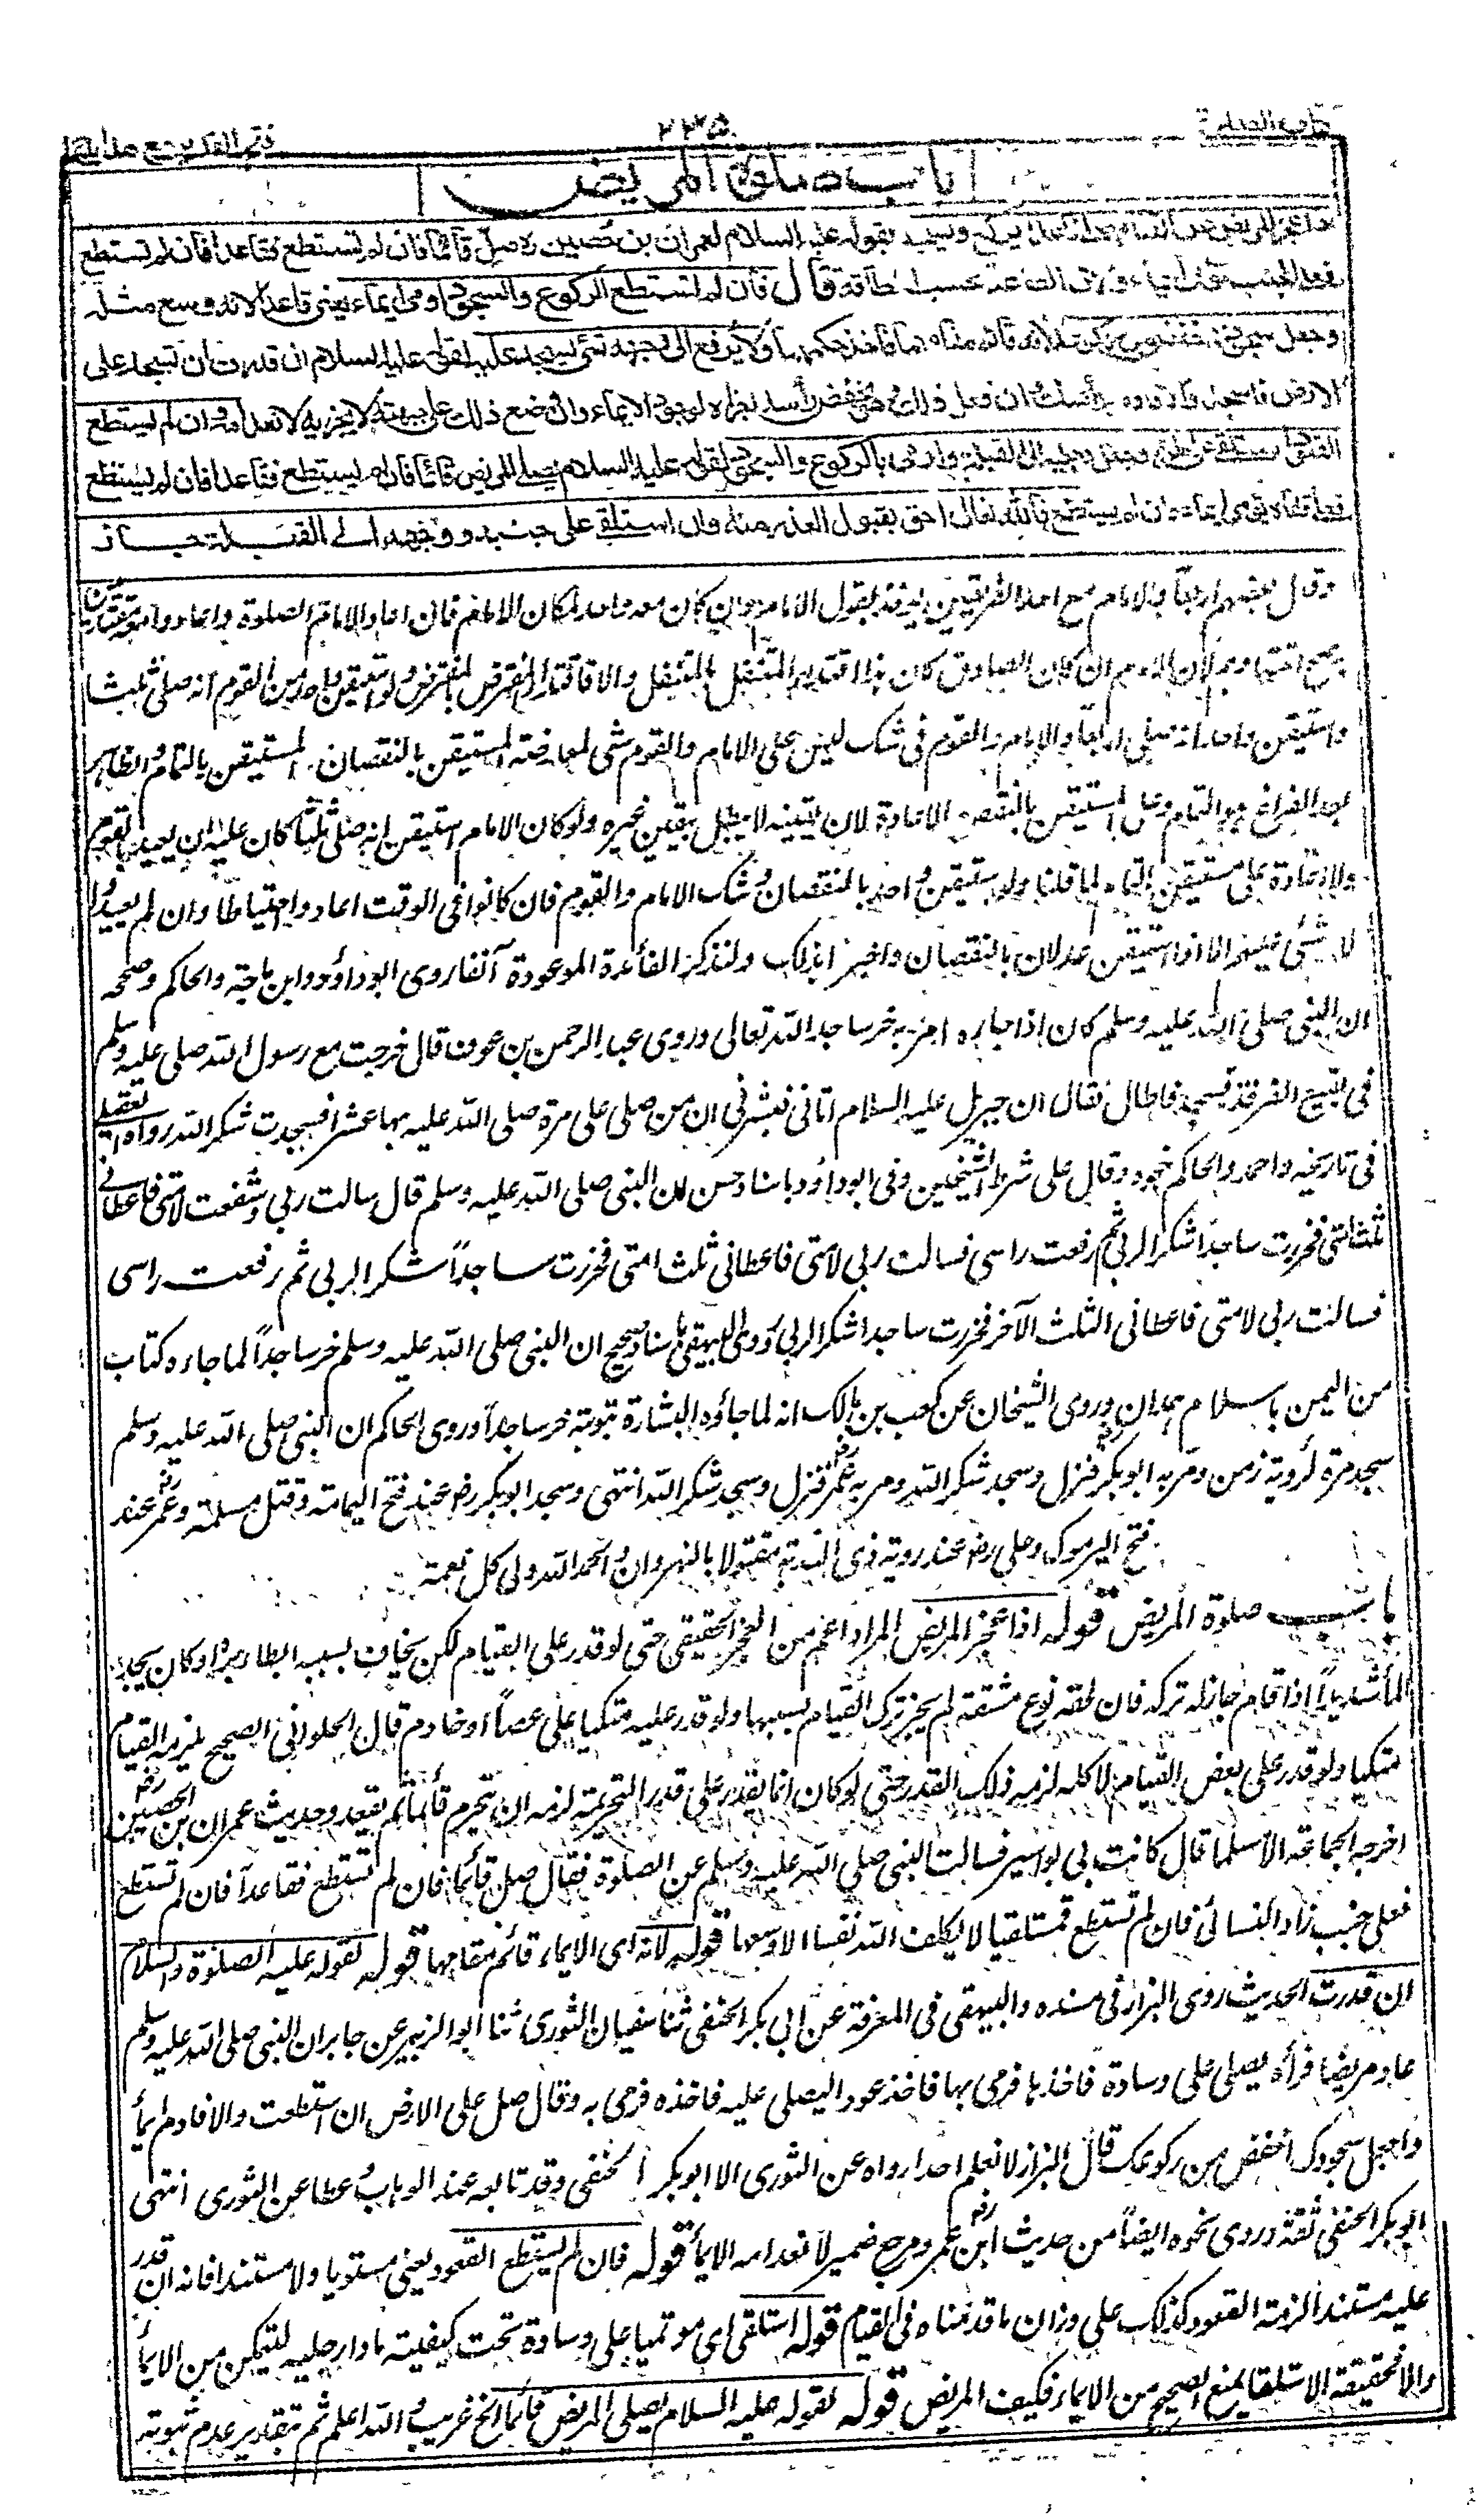 كتاب الصلوة
٢٢٥
فتح القدير مع هداية
باب صلوة المريض
اذا عجز المريض عن القيام صلى قاعدا يركع ويسجد لقوله عليه السلام لعمران بن حصين رض صل قائما فان لم تستطع فقاعدا فان لم تستطع
فعلى الجنب تومي ايماء ولان الطاعة بحسب الطاقة قال فان لم تستطع الركوع والسجود اومى ايماء يعنى قاعدا لانه وسع مثله
وجعل سجوده اخفض من ركوعه لانه قائم مقامهما فاخذ حكمهما ولا يرفع الى وجهه شئ يسجد عليه لقوله عليه السلام ان قدرت ان تسجد على
الارض فاسجد والا فاوم برأسك وان فعل ذلك وهو يخفض رأسه اجزاه لوجود الايماء وان وضع ذلك على جبهته لا يجزيه لانعدامه وان لم يستطع
القعود استلقى على ظهره وجعل رجليه الى القبلة واومى بالركوع والسجود لقوله عليه السلام يصلى المريض قائما فان لم يستطع فقاعدا فان لم يستطع
فعلى قفاه يومى ايماء فان لم يستطع فالله تعالى احق بقبول العذر منه وان استلقى على جنبه ووجهه الى القبلة جاز
وقال بعضهم اربعا والامام مع احد الفريقين يوخذ بقول الامام وان كان معه واحد لمكان الامام فان اعاد الامام الصلوة واعادوا معه مقتدين
يصح اقتداؤهم لان الامام ان كان الصادق كان هذا اقتداء المتنفل بالمتنفل والا فاقتداء المفترض بالمفترض ولو استيقن واحد من القوم انه صلى ثلثا
واستيقن واحد انه صلى اربعا والامام والقوم فى شك ليس على الامام والقوم شئ لمعارضة المستيقن بالنقصان المستيقن بالتمام والظاهر
بعد الفراغ هو التمام وعلى المستيقن بالنقص الاعادة لان يقينه لا يبطل بيقين غيره ولو كان الامام استيقن انه صلى ثلثا كان عليه ان يعيد بالقوم
ولا اعادة على مستيقن التمام لما قلنا ولو استيقن واحد بالنقصان وشك الامام والقوم فان كانوا فى الوقت اعادوا احتياطا وان لم يعيدوا
لا شئ عليهم الا اذا استيقن عدلان بالنقصان واخبرا بذلك ولنذكر الفائدة الموعودة آنفا روى ابو داؤد وابن ماجة والحاكم وصححه
ان النبى صلى الله عليه وسلم كان اذا جاءه امر به خر ساجدا لله تعالى وروى عبد الرحمن بن عوف قال خرجت مع رسول الله صلى عليه وسلم
فى بقيع الغرقد فسجد فاطال فقال ان جبريل عليه السلام اتانى فبشرنى ان من صلى على مرة صلى الله عليه بها عشرا فسجدت شكرا لله رواه العقيلى
فى تاريخه واحمد والحاكم نحوه وقال على شرط الشيخين وفى ابو داؤد باسناد حسن ان النبى صلى الله عليه وسلم قال سالت ربى وشفعت لامتى فاعطانى
ثلث امتى فخررت ساجدا شكرا لربى ثم رفعت راسى فسالت ربى لامتى فاعطانى ثلث امتى فخررت ساجداً شكرا لربى ثم رفعت راسى
فسالت ربى لامتى فاعطانى الثلث الآخر فخررت ساجدا شكرا لربى وروى البيهقى باسناد صحيح ان النبى صلى الله عليه وسلم خر ساجداً لما جاءه كتاب
من اليمن باسلام همدان وروى الشيخان عن كعب بن مالك انه لما جاؤه البشارة بتوبته خر ساجداً وروى الحاكم ان النبى صلى الله عليه وسلم
سجد مرة لرؤية زمن ومر به ابو بكر رض فنزل وسجد شكرا لله ومر به عمر رض فنزل وسجد شكرا لله انتهى وسجد ابو بكر رض عند فتح اليمامة وقتل مسيلمة وعمر رض عند
فتح اليرموك وعلى رض عند روية ذى الثدية مقتولا بالنهروان والحمد لله ولى كل نعمة
باب صلوة المريض قوله اذا عجز المريض المراد اعم من العجز الحقيقى حتى لو قدر على القيام لكن يخاف بسببه ابطاء برء او كان يجد
الما شديداً اذا قام جاز له تركه فان لحقه نوع مشقة لم يجز ترك القيام بسببها ولو قدر عليه متكيا على عصاً او خادم قال الحلوانى الصحيح يلزمه القيام
متكيا ولو قدر على بعض القيام لا كله لزمه ذلك القدر حتى لو كان انما يقدر على قدر التحريمة لزمه ان يتحرم قائما ثم يقعد وحديث عمران بن الحصين رض
اخرجه الجماعة الا مسلما قال كانت بى بواسير فسالت النبى صلى الله عليه وسلم عن الصلوة فقال صل قائما فان لم تستطع فقاعداً فان لم تستطع
فعلى جنب زاد النسائى فان لم تستطع فمستلقيا لا يكلف الله نفسا الا وسعها قوله لانه اى الايماء قائم مقامها قوله لقوله عليه الصلوة والسلام
ان قدرت الحديث روى البزار فى مسنده والبيهقى فى المعرفة عن ابى بكر الحنفى ثنا سفيان الثورى ثنا ابو الزبير عن جابر ان النبى صلى الله عليه وسلم
عاد مريضا فرأه يصلى على وسادة فاخذها فرمى بها فاخذ عودا ليصلى عليه فاخذه فرمى به وقال صل على الارض ان استطعت والا فاوم ايماء
واجعل سجودك اخفض من ركوعك قال البزار لا نعلم احدا رواه عن الثورى الا ابو بكر الحنفى وقد تابعه عبد الوهاب وعطا عن الثورى انتهى
ابو بكر الحنفى ثقة وروى نحوه ايضاً من حديث ابن عمر رض ومرجع ضمير لانعدامه الايماء قوله فان لم يستطع القعود يعنى مستويا ولا مستندا فانه ان قدر
عليه مستندا لزمه القعود كذلك على وزان ما قدمناه فى القيام قوله استلقى اى موتميا على وسادة تحت كتفيه مادا رجليه ليتمكن من الايماء
والا فحقيقة الاستلقاء يمنع الصحيح من الايماء فكيف المريض قوله لقوله عليه السلام يصلى المريض قائما الخ غريب والله اعلم ثم بتقدير عدم ثبوته